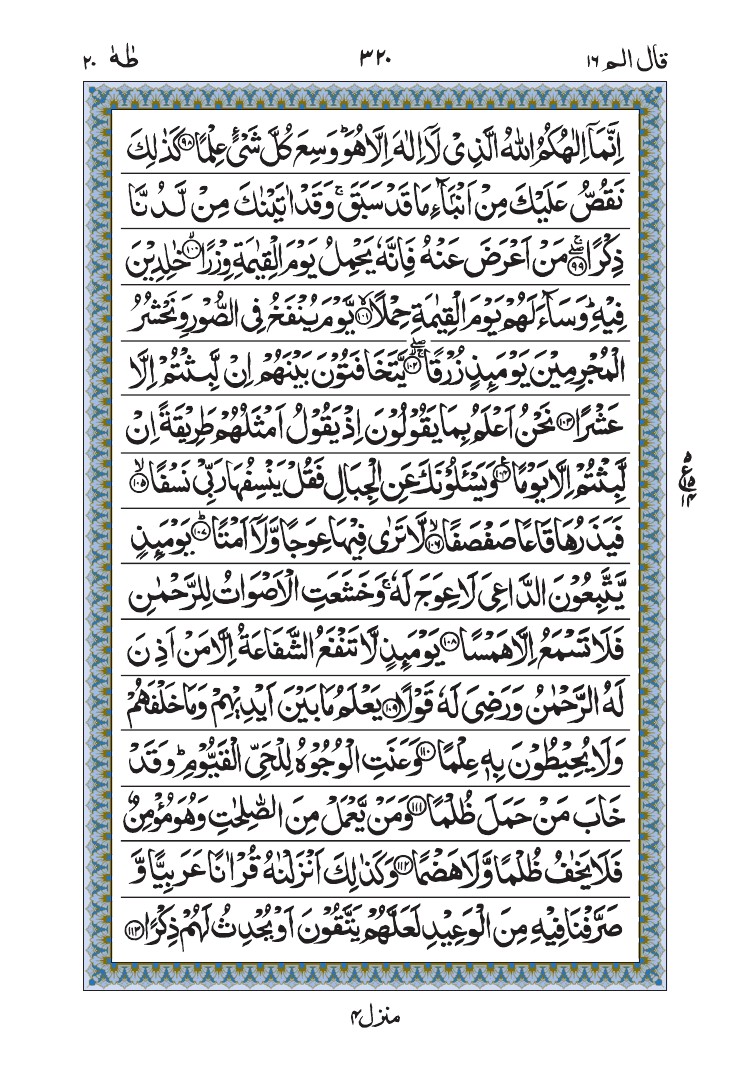 قال الم ١٦ ٣٢٠ طٰهٰ ٢٠
اِنَّمَاۤ اِلٰهُكُمُ اللّٰهُ الَّذِیْ لَاۤ اِلٰهَ اِلَّا هُوَ ؕ وَسِعَ كُلَّ شَیْءٍ عِلْمًا ﴿۹۸﴾ كَذٰلِكَ
نَقُصُّ عَلَیْكَ مِنْ اَنْۢبَآءِ مَا قَدْ سَبَقَ ۚ وَقَدْ اٰتَیْنٰكَ مِنْ لَّدُنَّا
ذِكْرًا ﴿۹۹﴾ۖۚ مَنْ اَعْرَضَ عَنْهُ فَاِنَّهٗ یَحْمِلُ یَوْمَ الْقِیٰمَةِ وِزْرًا ﴿۱۰۰﴾ۙ خٰلِدِیْنَ
فِیْهِ ؕ وَسَآءَ لَهُمْ یَوْمَ الْقِیٰمَةِ حِمْلًا ﴿۱۰۱﴾ۙ یَّوْمَ یُنْفَخُ فِی الصُّوْرِ وَنَحْشُرُ
الْمُجْرِمِیْنَ یَوْمَىِٕذٍ زُرْقًا ﴿۱۰۲﴾ۚۖ یَّتَخَافَتُوْنَ بَیْنَهُمْ اِنْ لَّبِثْتُمْ اِلَّا
عَشْرًا ﴿۱۰۳﴾ نَحْنُ اَعْلَمُ بِمَا یَقُوْلُوْنَ اِذْ یَقُوْلُ اَمْثَلُهُمْ طَرِیْقَةً اِنْ
لَّبِثْتُمْ اِلَّا یَوْمًا ﴿۱۰۴﴾ وَیَسْـَٔلُوْنَكَ عَنِ الْجِبَالِ فَقُلْ یَنْسِفُهَا رَبِّیْ نَسْفًا ﴿۱۰۵﴾ۙ
٥ ع ١٥ ١٤
فَیَذَرُهَا قَاعًا صَفْصَفًا ﴿۱۰۶﴾ۙ لَّا تَرٰی فِیْهَا عِوَجًا وَّلَاۤ اَمْتًا ﴿۱۰۷﴾ؕ یَوْمَىِٕذٍ
یَّتَّبِعُوْنَ الدَّاعِیَ لَا عِوَجَ لَهٗ ۚ وَخَشَعَتِ الْاَصْوَاتُ لِلرَّحْمٰنِ
فَلَا تَسْمَعُ اِلَّا هَمْسًا ﴿۱۰۸﴾ یَوْمَىِٕذٍ لَّا تَنْفَعُ الشَّفَاعَةُ اِلَّا مَنْ اَذِنَ
لَهُ الرَّحْمٰنُ وَرَضِیَ لَهٗ قَوْلًا ﴿۱۰۹﴾ یَعْلَمُ مَا بَیْنَ اَیْدِیْهِمْ وَمَا خَلْفَهُمْ
وَلَا یُحِیْطُوْنَ بِهٖ عِلْمًا ﴿۱۱۰﴾ وَعَنَتِ الْوُجُوْهُ لِلْحَیِّ الْقَیُّوْمِ ؕ وَقَدْ
خَابَ مَنْ حَمَلَ ظُلْمًا ﴿۱۱۱﴾ وَمَنْ یَّعْمَلْ مِنَ الصّٰلِحٰتِ وَهُوَ مُؤْمِنٌ
فَلَا یَخٰفُ ظُلْمًا وَّلَا هَضْمًا ﴿۱۱۲﴾ وَكَذٰلِكَ اَنْزَلْنٰهُ قُرْاٰنًا عَرَبِیًّا وَّ
صَرَّفْنَا فِیْهِ مِنَ الْوَعِیْدِ لَعَلَّهُمْ یَتَّقُوْنَ اَوْ یُحْدِثُ لَهُمْ ذِكْرًا ﴿۱۱۳﴾
منزل ۴